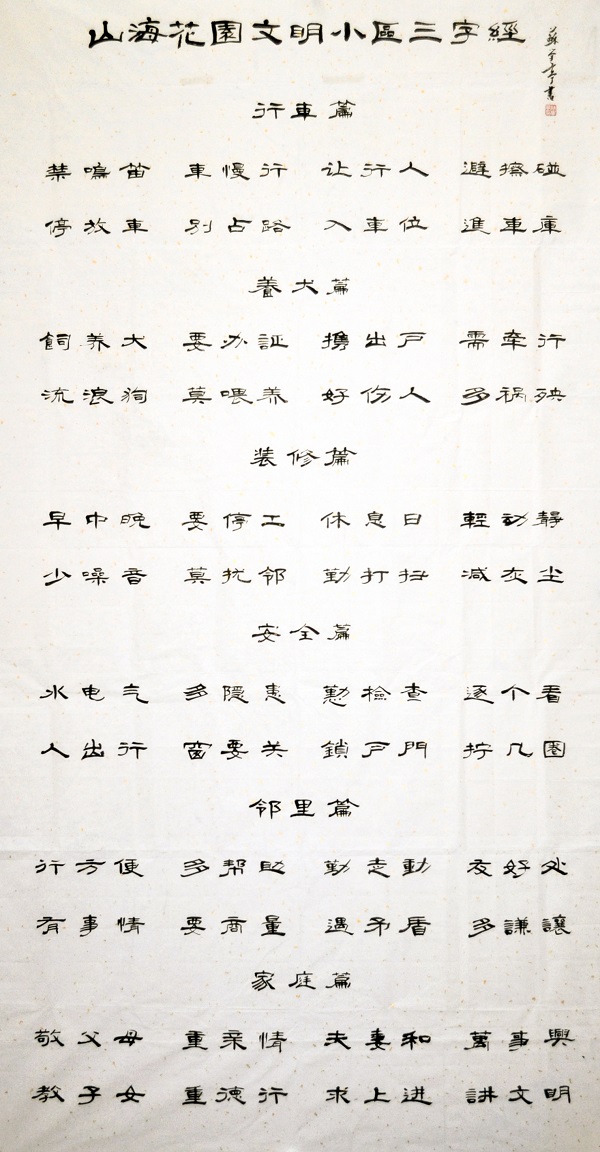 山海花園文明小區三字經
行車篇
禁鳴笛 車慢行 让行人 避擦碰
停放車 别占路 入車位 進車庫
養犬篇
飼养犬 要办証 携出户 需牵行
流浪狗 莫喂养 好伤人 多祸殃
装修篇
早中晚 要停工 休息日 輕动静
少噪音 莫扰邻 勤打扫 减灰尘
安全篇
水电气 多隐患 勤檢查 逐个看
人出行 窗要关 鎖户門 拧几圈
邻里篇
行方便 多帮助 勤走動 友好处
有事情 要商量 遇矛盾 多謙讓
家庭篇
敬父母 重柔情 夫妻和 萬事興
教子女 重德行 求上进 讲文明